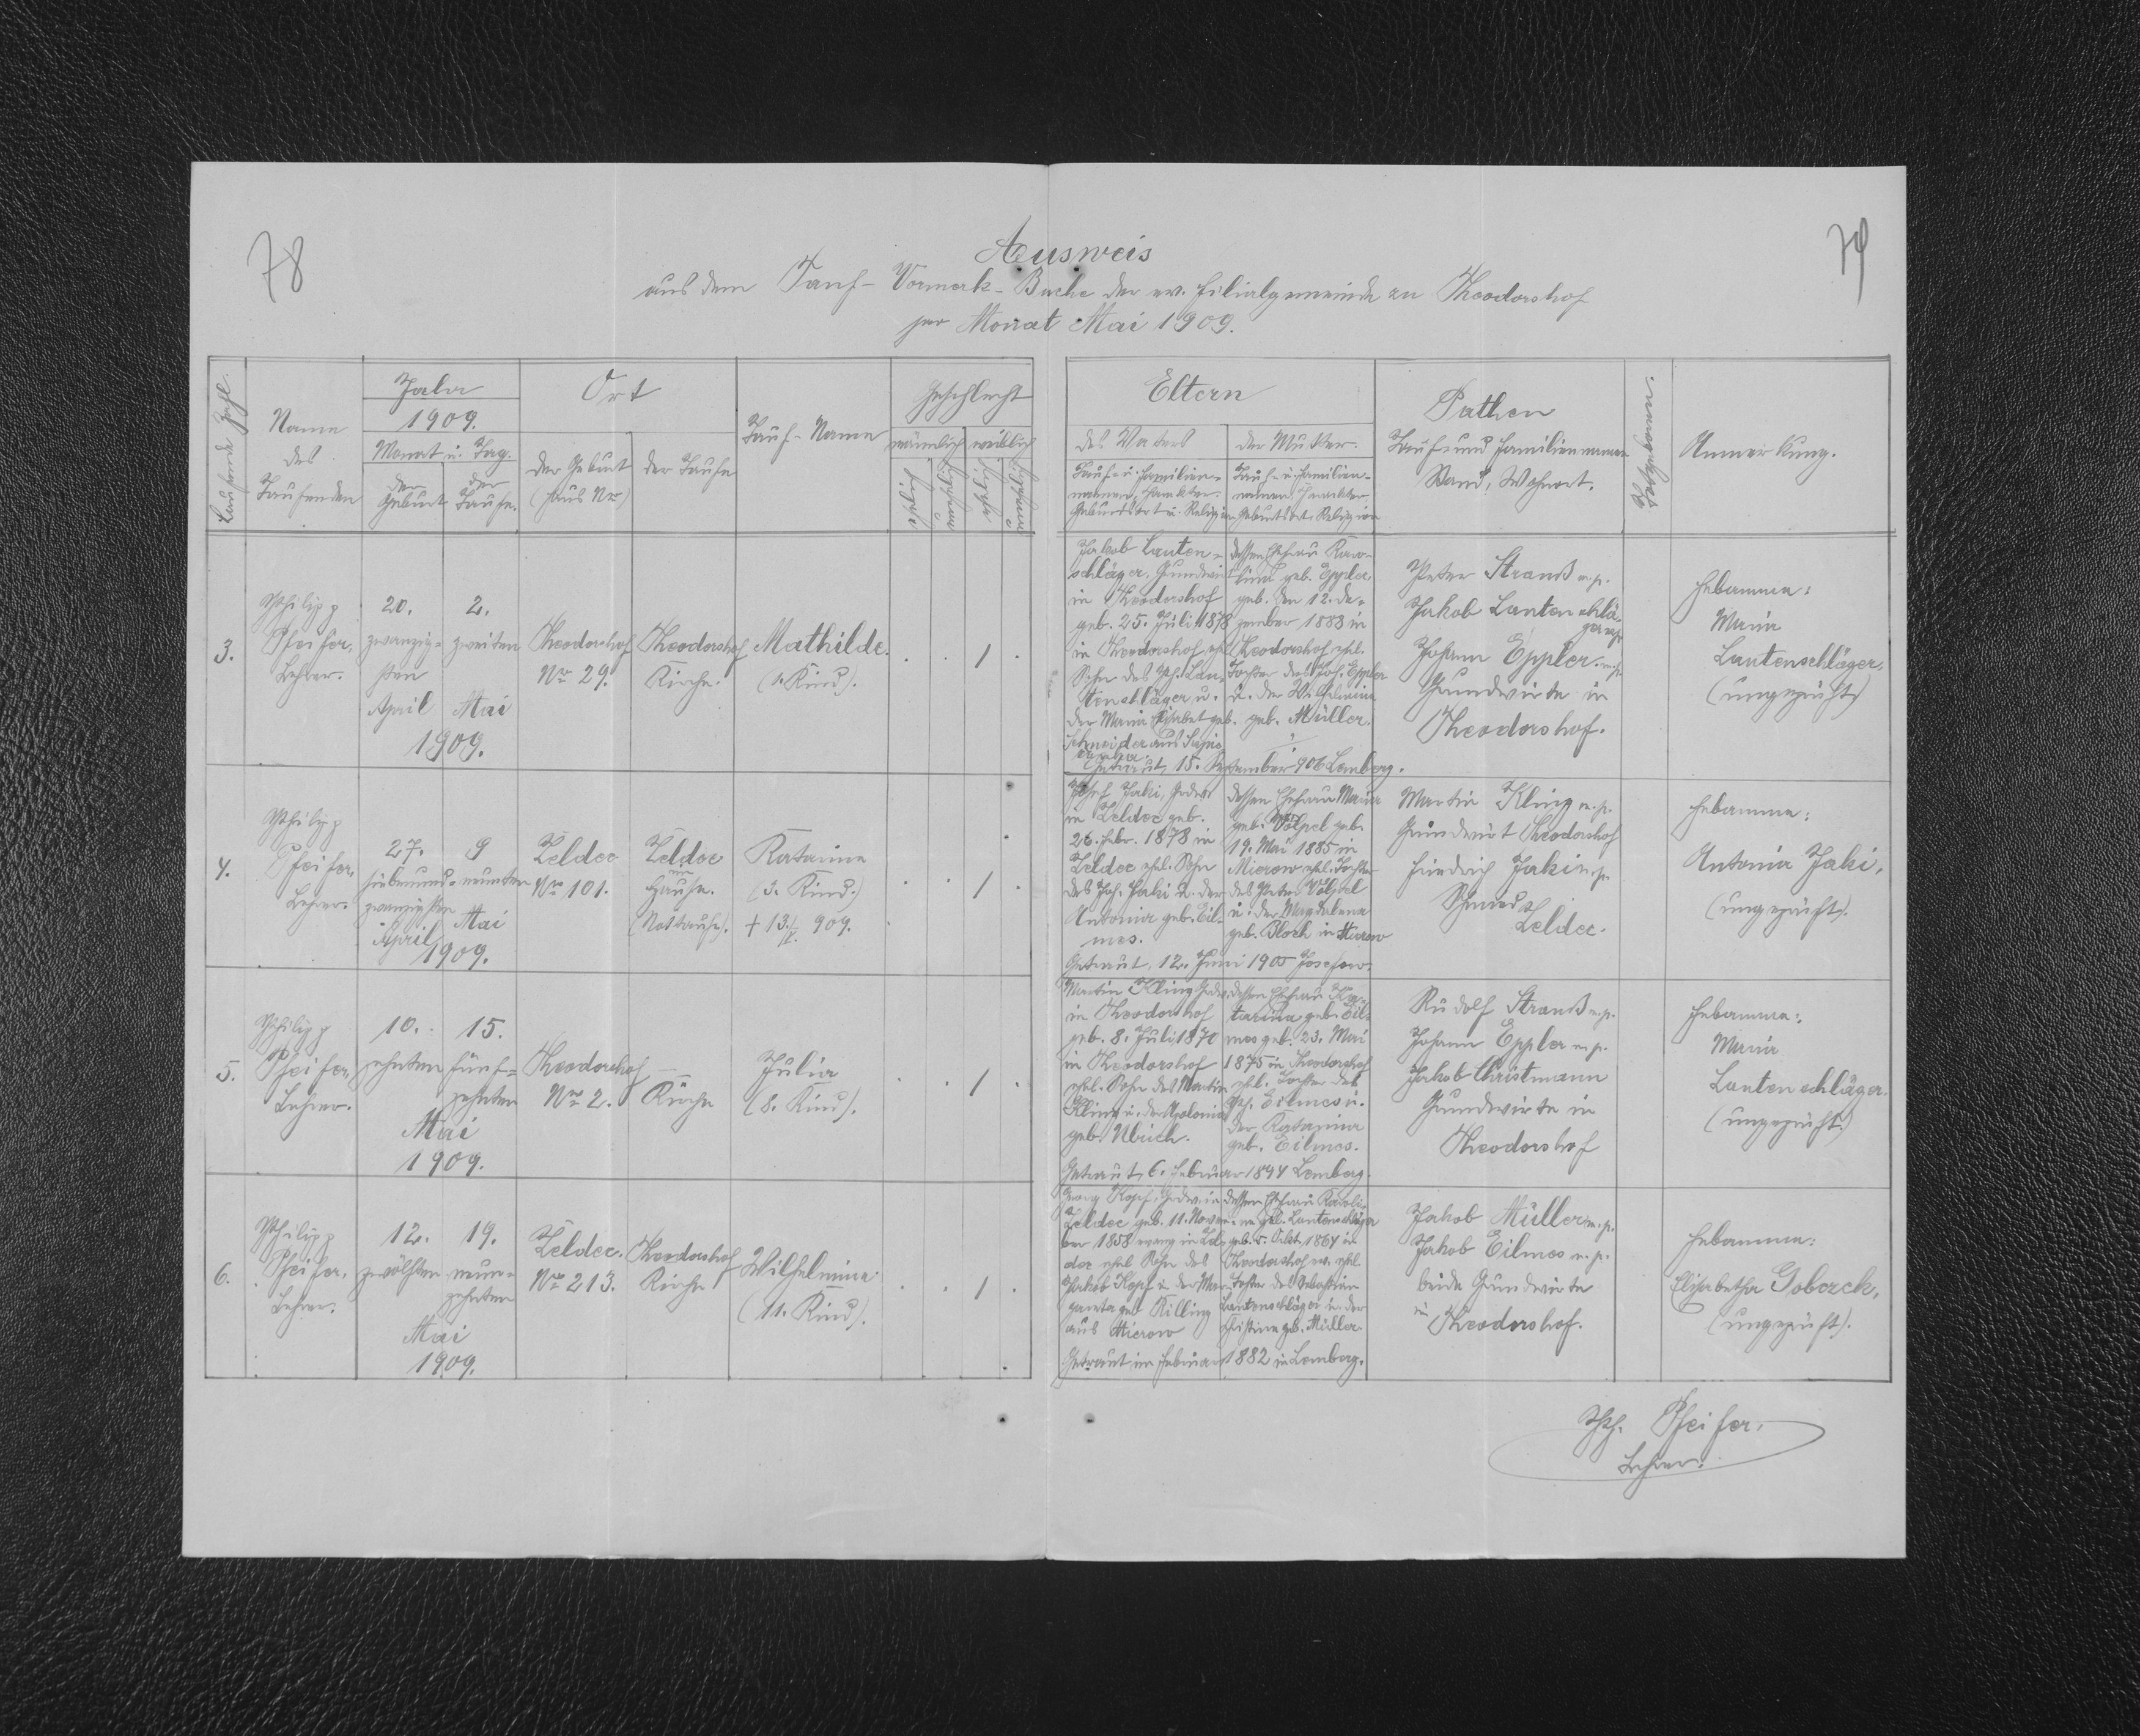 78
79
Ausweis
aus dem Tauf-Vormerk-Buche der ev. Filialgemeinde zu Theodorshof
pro Monat Mai 1909.
Laufende Zahl
Name
des
Taufenden
Jahr
1909.
Monat u. Tag.
der
Geburt
der
Taufe.
Ort
der Geburt
(Haus Nro)
der Taufe
Tauf-Name
Geschlecht
männlich
weiblich
Eltern
des Vaters
Tauf- u. Familien-
namen, Charakter.
Geburtsort u. Religion
der Mutter.
Tauf- u. Familien-
namen, Charakter
Geburtsort, Religion
Pathen
Tauf- und Familiennamen
Stand, Wohnort.
Anmerkung.
3.
Philipp
Pfeifer,
Lehrer.
20.
zwanzig-
sten
April
2.
zweiten
Mai
1909.
Theodorshof
Nro 29.
Theodorshof
Kirche.
Mathilde.
(1. Kind).
1
Jakob Lauten-
schläger, Grundwirt
in Theodorshof
geb. 25. Juli 1878
in Theodorshof ehl.
Sohn des Joh. Lau-
tenschläger u.
der Maria Elisabet geb.
Schneider aus
dessen Ehefrau Karo-
lina geb. Eppler,
geb. den 12. De-
zember 1888 in
Theodorshof ehl.
Tochter des Joh. Eppler
u. der Wilhelmine
geb. Müller.
Getraut, 15. September 906 Lemberg.
Peter Strauß m.p.
Jakob Lautenschlä-
ger m.p.
Johann Eppler m.p.
Grundwirte in
Theodorshof.
Hebamme:
Maria
Lautenschläger,
(ungeprüft)
4.
Philipp
Pfeifer,
Lehrer.
27.
siebenund-
zwanzigsten
April
9
neunten
Mai
1909.
Zeldec
Nro 101.
Zeldec
im
Hause.
(Nottaufe).
Katarina
(3. Kind.)
+ 13./V. 909.
1
Josef Jaki, Grdw.
in Zeldec geb.
26. Febr. 1878 in
Zeldec ehl. Sohn
des Joh. Jaki u. der
Antonia geb. Eil-
mes.
dessen Ehefrau Maria
geb. Völpel geb.
19. Mai 1885 in
Mierow ehl. Tochter
des Peter Völpel
u. der Magdalena
geb. Bloch in Mierow
Getraut, 12. Juni 1905 Josefow.
Martin Kling m.p.
Grundwirt Theodorshof
Friedrich Jaki m.p.
Schmied
Zeldec.
Hebamme:
Antonia Jaki,
(ungeprüft).
5.
Philipp
Pfeifer,
Lehrer.
10.
zehnten
15.
fünf-
zehnten
Mai
1909.
Theodorshof
Nro 2.
—
Kirche
Julia
(8. Kind).
1
Martin Kling Grdw.
in Theodorshof
geb. 8. Juli 1870
in Theodorshof
ehl. Sohn des Martin
Kling u. der Apolonia
geb. Ulrich.
dessen Ehefrau Ka-
tarina geb. Eil-
mes geb. 23. Mai
1875 in Theodorshof
ehl. Tochter des
Joh. Eilmes u.
der Katarina
geb. Eilmes.
Getraut, 6. Februar 1894 Lemberg.
Rudolf Strauß m.p.
Johann Eppler m.p.
Jakob Christmann
Grundwirte in
Theodorshof
Hebamme:
Maria
Lautenschläger.
(ungeprüft)
6.
Philipp
Pfeifer,
Lehrer.
12.
zwölften
19.
neun-
zehnten
Mai
1909.
Zeldec.
Nro 213.
Theodorshof
Kirche
Wilhelmina
(11. Kind).
1
Georg Kopf, Grdw. in
Zeldec geb. 11. Novem-
ber 1858 evang in Zel-
dec ehel Sohn des
Jakob Kopf u. der Mar-
gareta geb Killing
aus Mierow
dessen Ehefrau Karoli-
ne geb. Lautenschläger
geb. 5. Okt. 1864 in
Theodorshof ev. ehel
Tochter des Sebastian
Lautenschläger u. der
Christine geb. Müller.
Getraut im Februar 1882 in Lemberg.
Jakob Müller m.p.
Jakob Eilmes m.p.
beide Grundwirte
in Theodorshof.
Hebamme:
Elisabetha Gobczek,
(ungeprüft).
Ph. Pfeifer,
Lehrer.